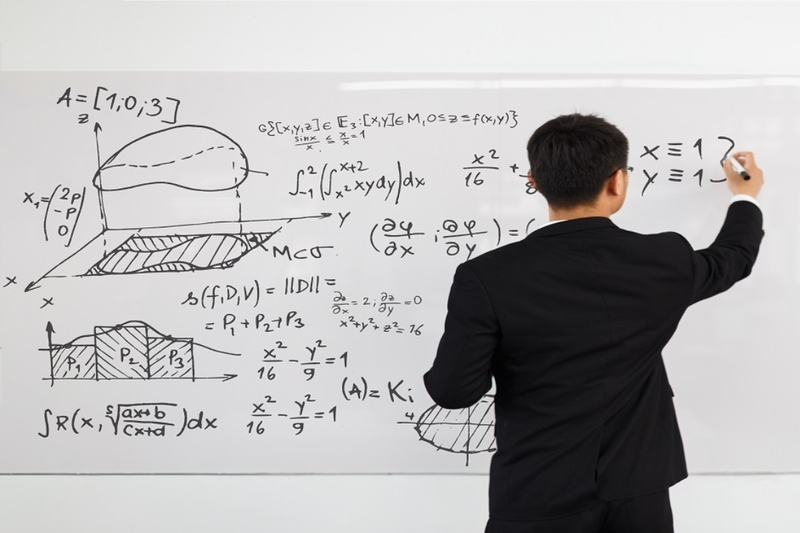 A=[1;0;3]
z
G{[x,y,z]∈E₃:[x,y]∈M,0≤z≤f(x,y)}
sinx/x ≤ x/x =1
∫₋₁²(∫ₓ²ˣ⁺²xydy)dx
x²/16 +
x≡1
y≡1
x₁=(2p -p 0)
y
(∂φ/∂x;∂φ/∂y)=(
M⊂σ
x
x
s(f,D,V)=||D||=
=P₁+P₂+P₃
∂z/∂x=2;∂z/∂y=0
x²+y²+z²=16
P₁ P₂ P₃
x²/16-y²/9=1
(A)=Kᵢ
∫R(x,⁵√(ax+b/cx+d))dx
x²/16-y²/9=1
4